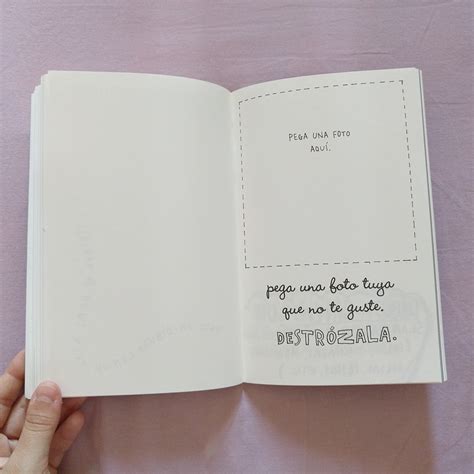 PEGA UNA FOTO
AQUÍ.
pega una foto tuya
que no te guste.
DESTRÓZALA.